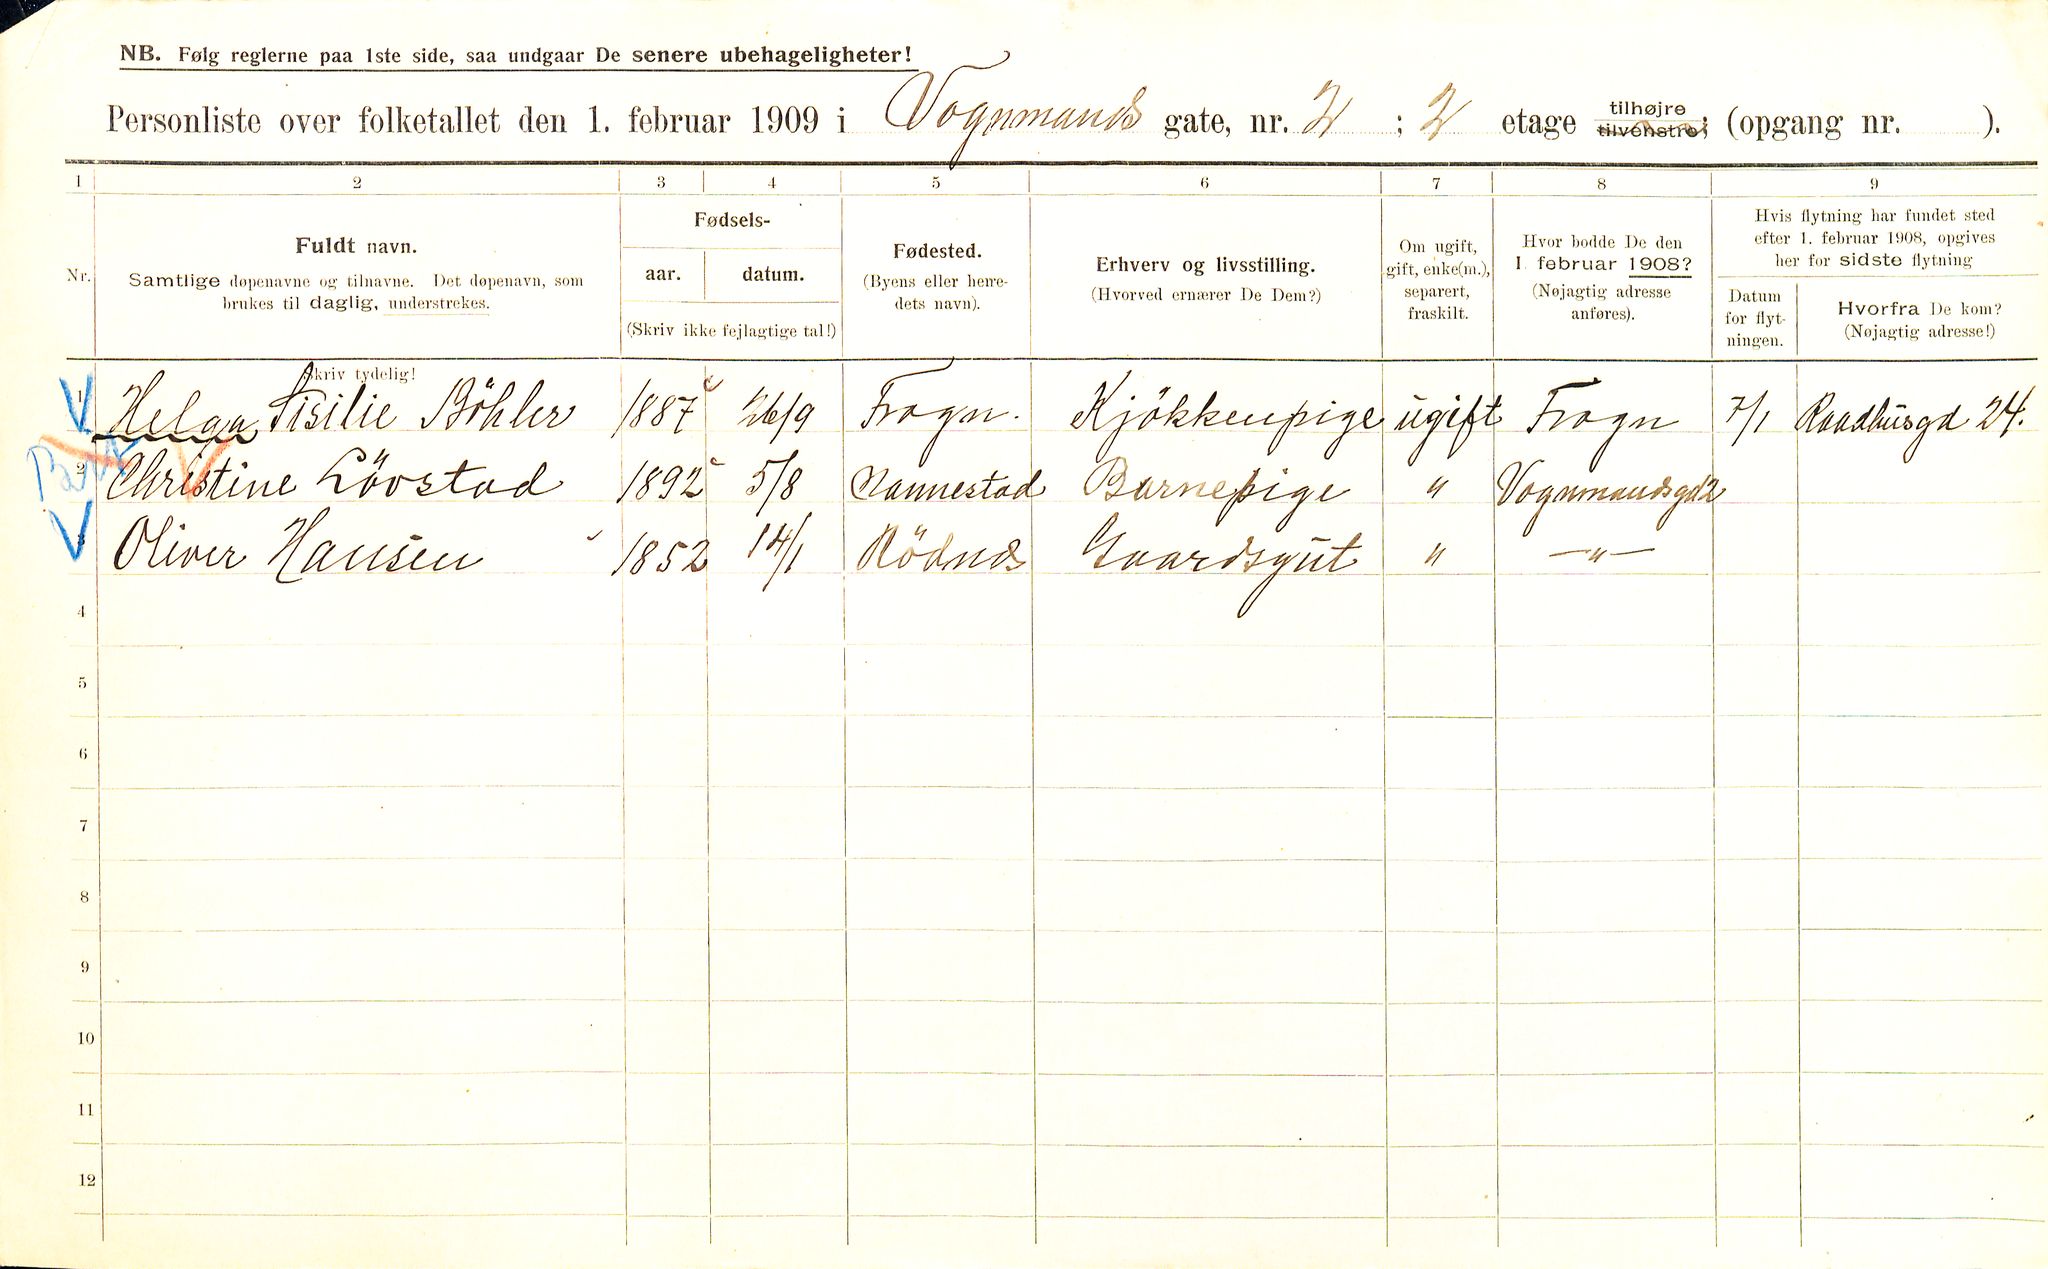 NB. Følg reglerne paa 1ste side, saa undgaar De senere ubehageligheter!
Personliste over folketallet den 1. februar 1909 i Vognmands gate, nr. 2 ; 2 etage tilhøjre tilvenstre; (opgang nr. ).
1 2 3 4 5 6 7 8 9
Nr. Fuldt navn. Samtlige døpenavne og tilnavne. Det døpenavn, som brukes til daglig, understrekes.
Fødsels- aar. datum. (Skriv ikke fejlagtige tal!)
Fødested. (Byens eller herredets navn).
Erhverv og livsstilling. (Hvorved ernærer De Dem?)
Om ugift, gift, enke(m.), separert, fraskilt.
Hvor bodde De den 1. februar 1908? (Nøjagtig adresse anføres).
Hvis flytning har fundet sted efter 1. februar 1908, opgives her for sidste flytning
Datum for flytningen. Hvorfra De kom? (Nøjagtig adresse!)
Skriv tydelig!
1 Helga Sisilie Böhler 1887 26/9 Frogn. Kjökkenpige ugift Frogn 7/1 Raadhusgd 24.
2 Christine Lövstad 1892 5/8 Nannestad Barnepige " Vognmandsgd 2
3 Oliver Hansen 1852 14/1 Rödnes Gaardsgut " —"—
4
5
6
7
8
9
10
11
12